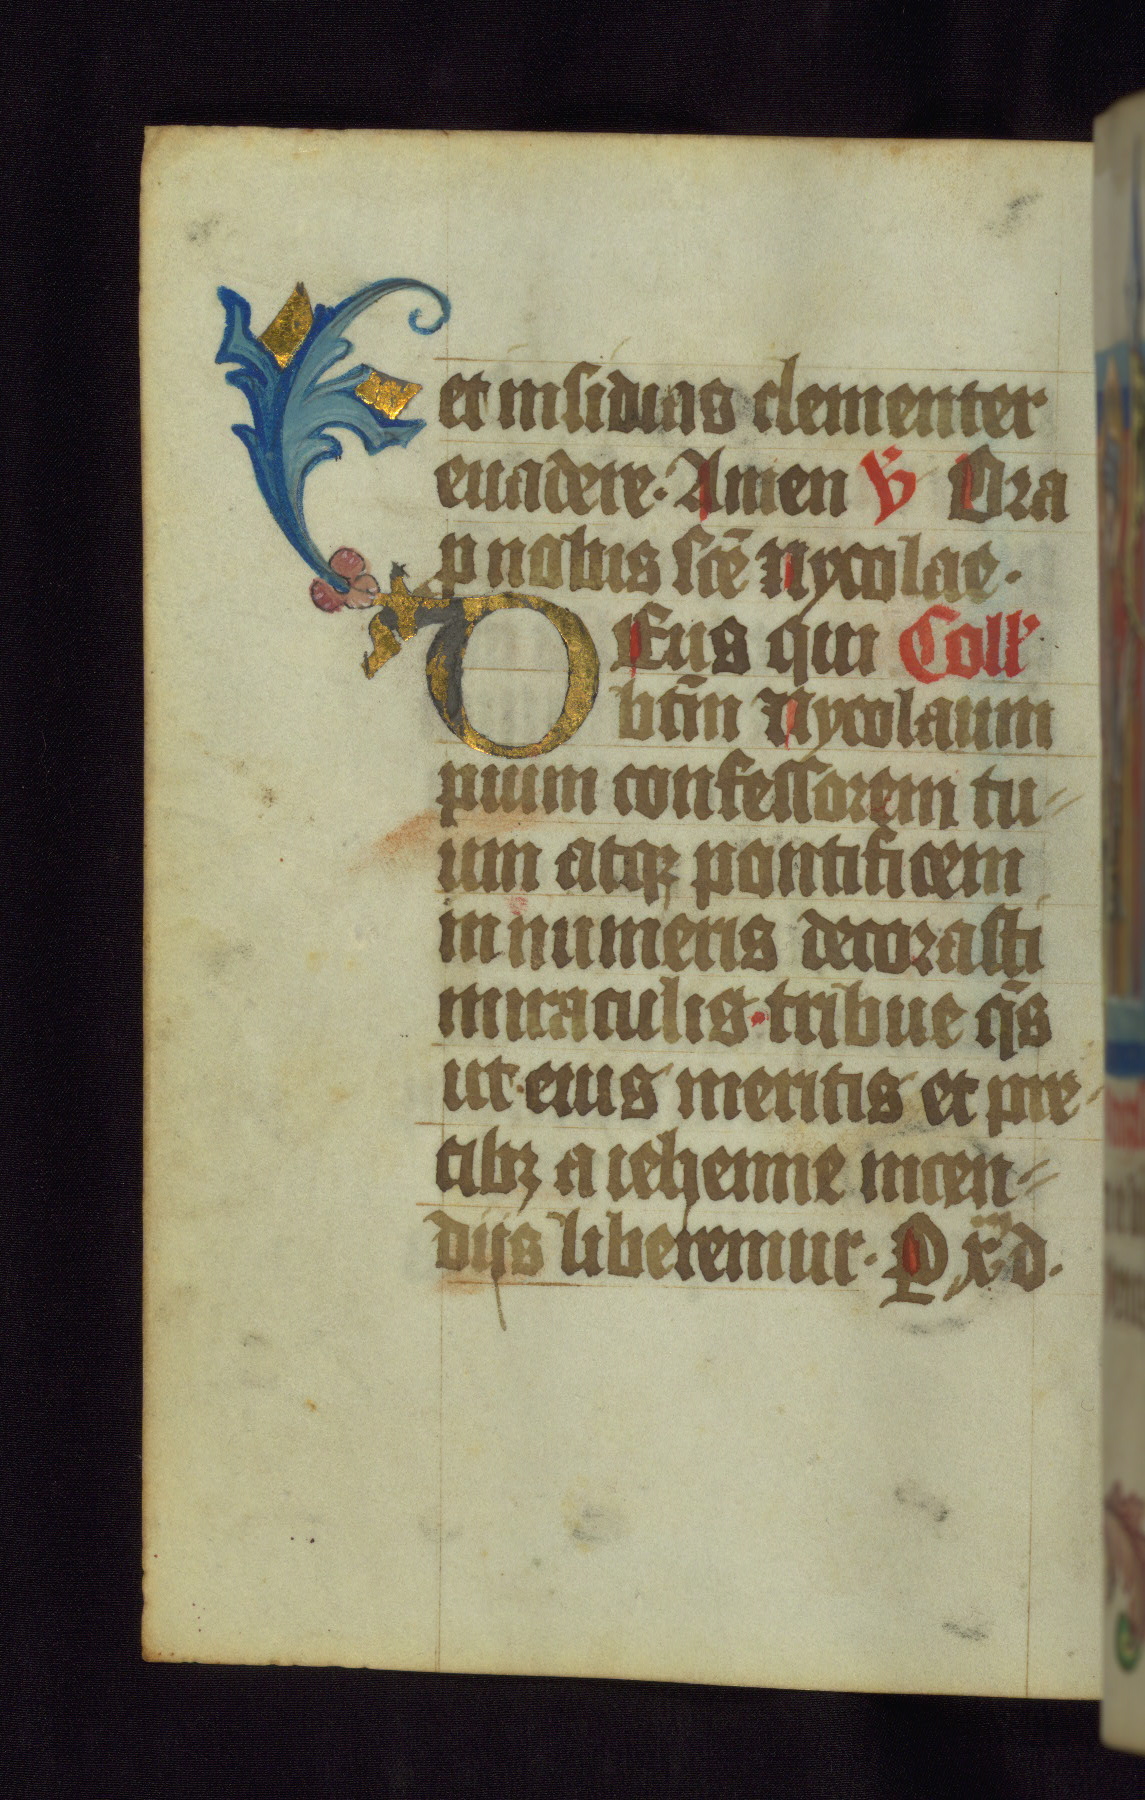 et insidias clementer
euadere. Amen V̄ Ora
p nobis sc̄e Nycolae.
DEus qui Coll'
bt̄m Nycolaum
pium confessorem tu-
um atqꝫ pontificem
in numeris decorasti
miraculis. tribue qs̄
ut eius meritis et pre-
cibꝫ a iehenne incen-
dijs liberemur. P xp̄m d.